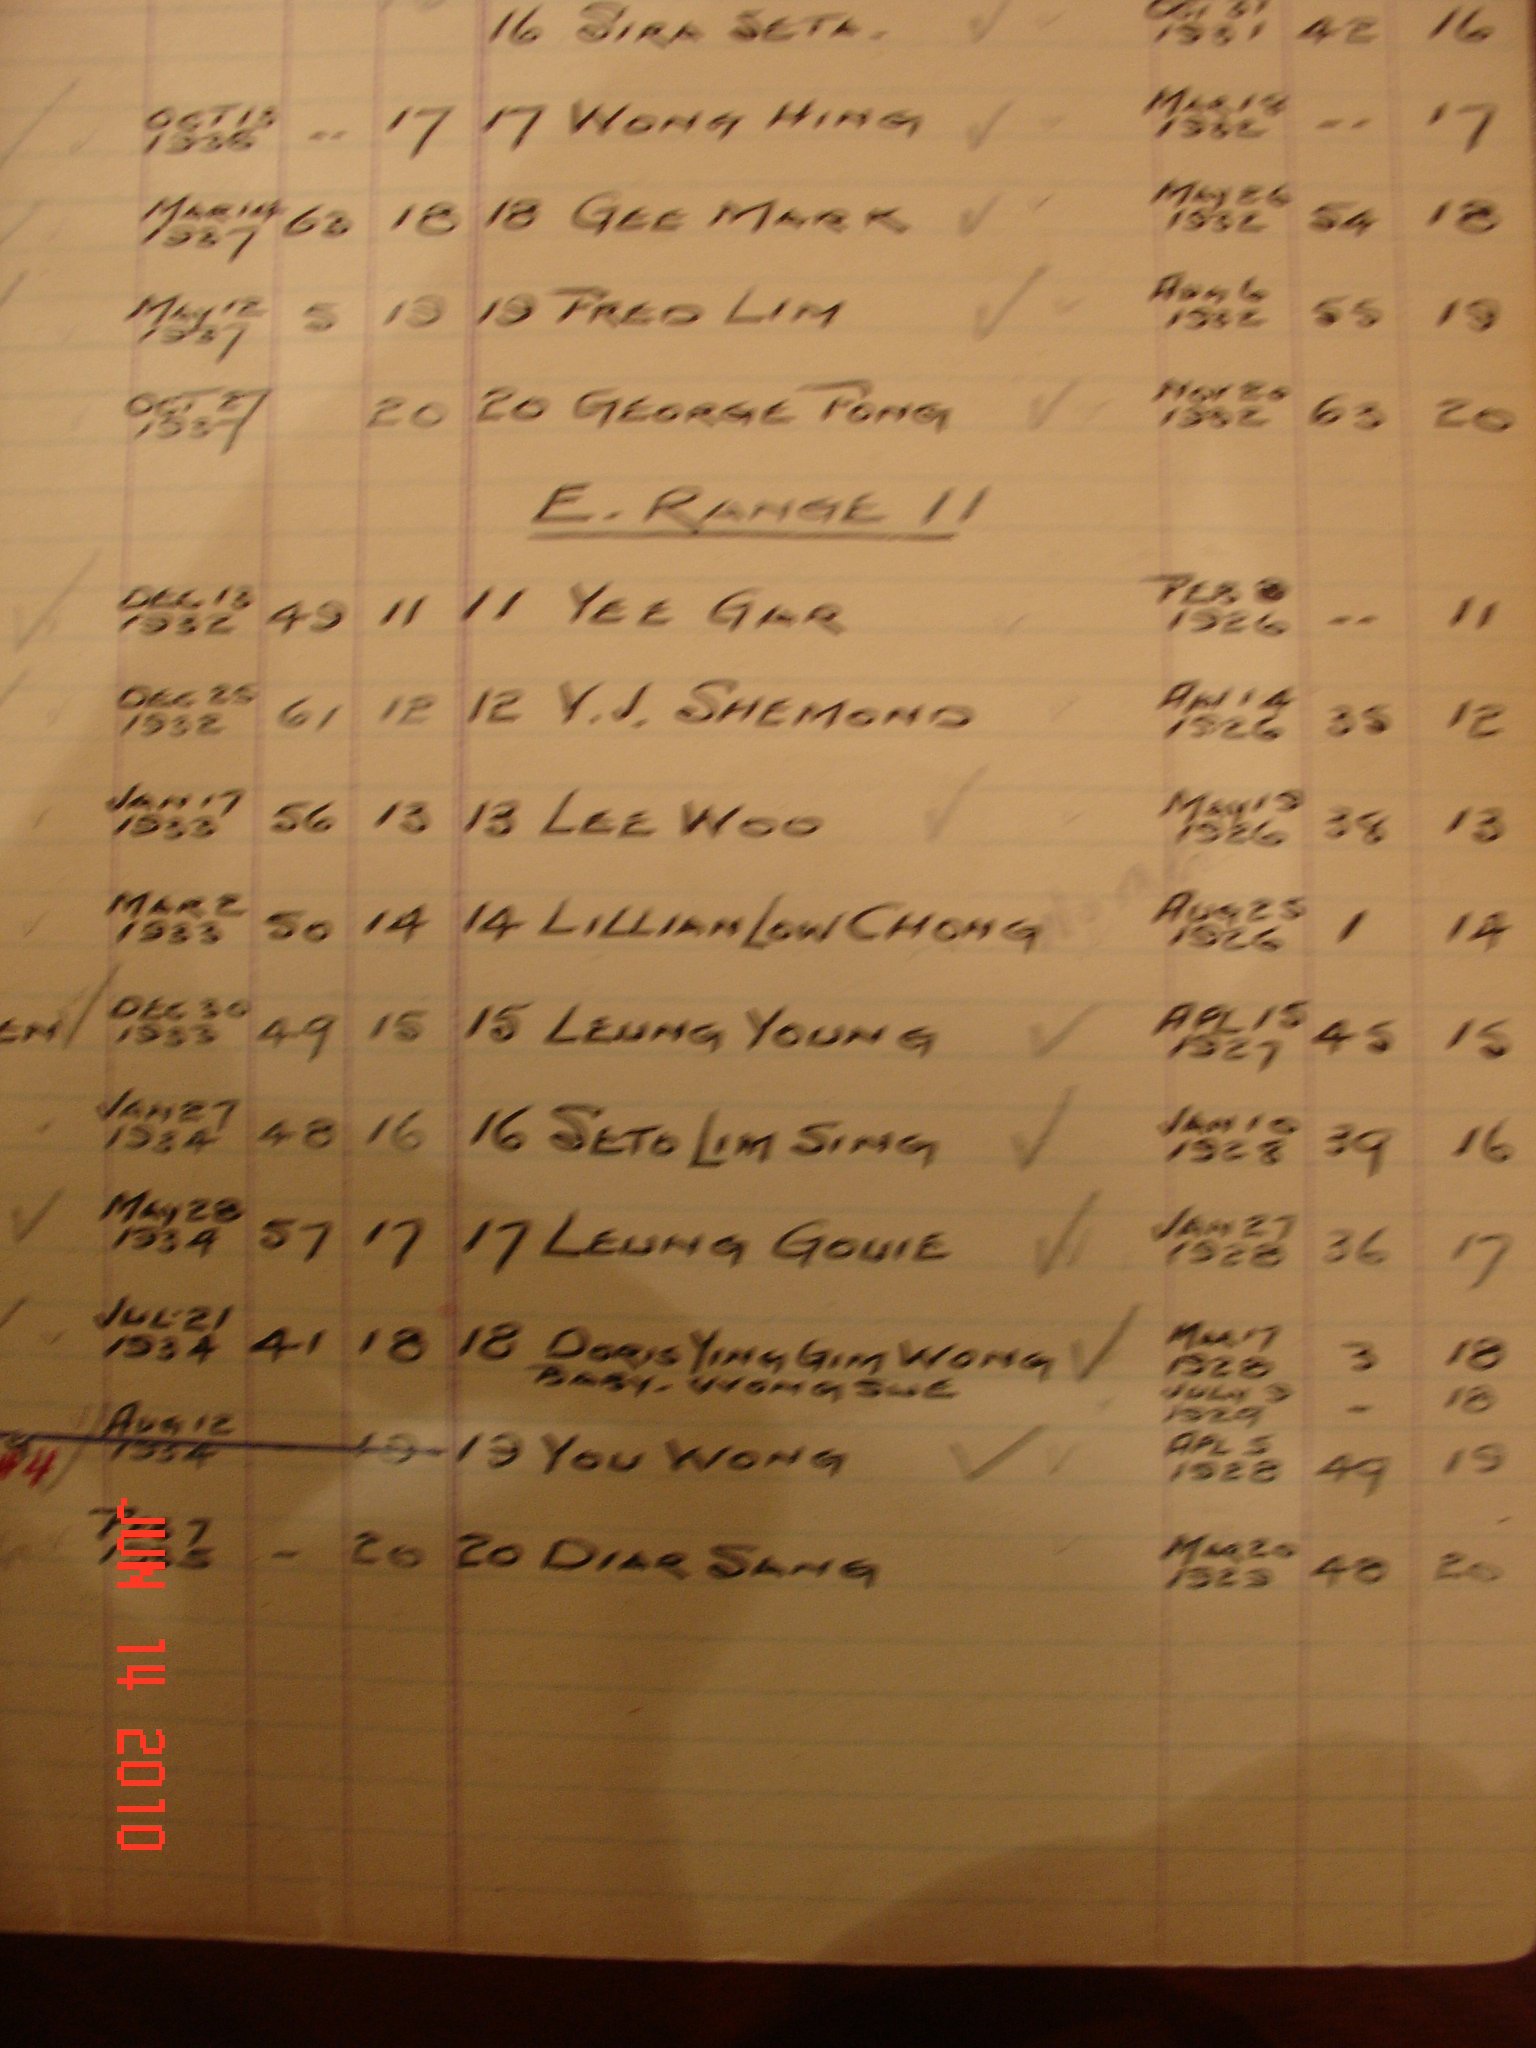 16 SIRA SETA. 1931 42 16
OCT 13 1936 -- 17 17 WONG HING MAR 18 1932 -- 17
MAR 14 1937 63 18 18 GEE MARK MAY 26 1932 54 18
MAY 12 1937 5 19 19 FRED LIM AUG 6 1932 55 19
OCT 27 1937 20 20 GEORGE FONG NOV 20 1932 63 20
E. RANGE 11
DEC 13 1932 49 11 11 YEE GAR FEB 8 1926 -- 11
DEC 25 1932 61 12 12 Y.J. SHEMOND APL 14 1926 35 12
JAN 17 1933 56 13 13 LEE WOO MAY 19 1926 38 13
MAR 2 1933 50 14 14 LILLIAN LOW CHONG AUG 25 1926 1 14
EN DEC 30 1933 49 15 15 LEUNG YOUNG APL 15 1927 45 15
JAN 27 1934 48 16 16 SETO LIM SING JAN 10 1928 39 16
MAY 28 1934 57 17 17 LEUNG GOUIE JAN 27 1928 36 17
JUL 21 1934 41 18 18 DORIS YING GIM WONG MAR 17 1928 3 18
BABY. WONG SUE JULY 9 1929 - 18
#4 AUG 12 1934 - 19 19 YOU WONG APL 5 1928 49 19
- 20 20 DIAR SANG MAR 20 1929 48 20
JUN 14 2010